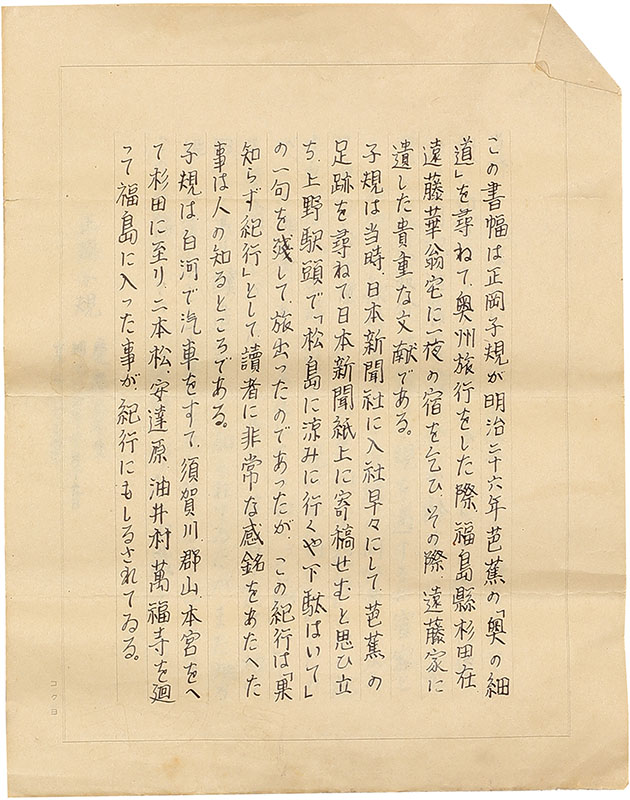 この書幅は正岡子規が明治二十六年芭蕉の「奥の細
道」を尋ねて、奥州旅行をした際、福島縣杉田在
遠藤華翁宅に一夜の宿を乞ひ、その際、遠藤家に
遺した貴重な文献である。
子規は当時、日本新聞社に入社早々にして、芭蕉の
足跡を尋ねて、日本新聞紙上に寄稿せむと思ひ立
ち、上野駅頭で「松島に涼みに行くや下駄はいて」
の一句を残して、旅出ったのであったが、この紀行は「果
知らず紀行」として、讀者に非常な感銘をあたへた
事は人の知るところである。
子規は、白河で汽車をすて、須賀川、郡山、本宮をへ
て杉田に至り、二本松、安達原、油井村、萬福寺を廻
って福島に入った事が紀行にもしるされてゐる。
コクヨ